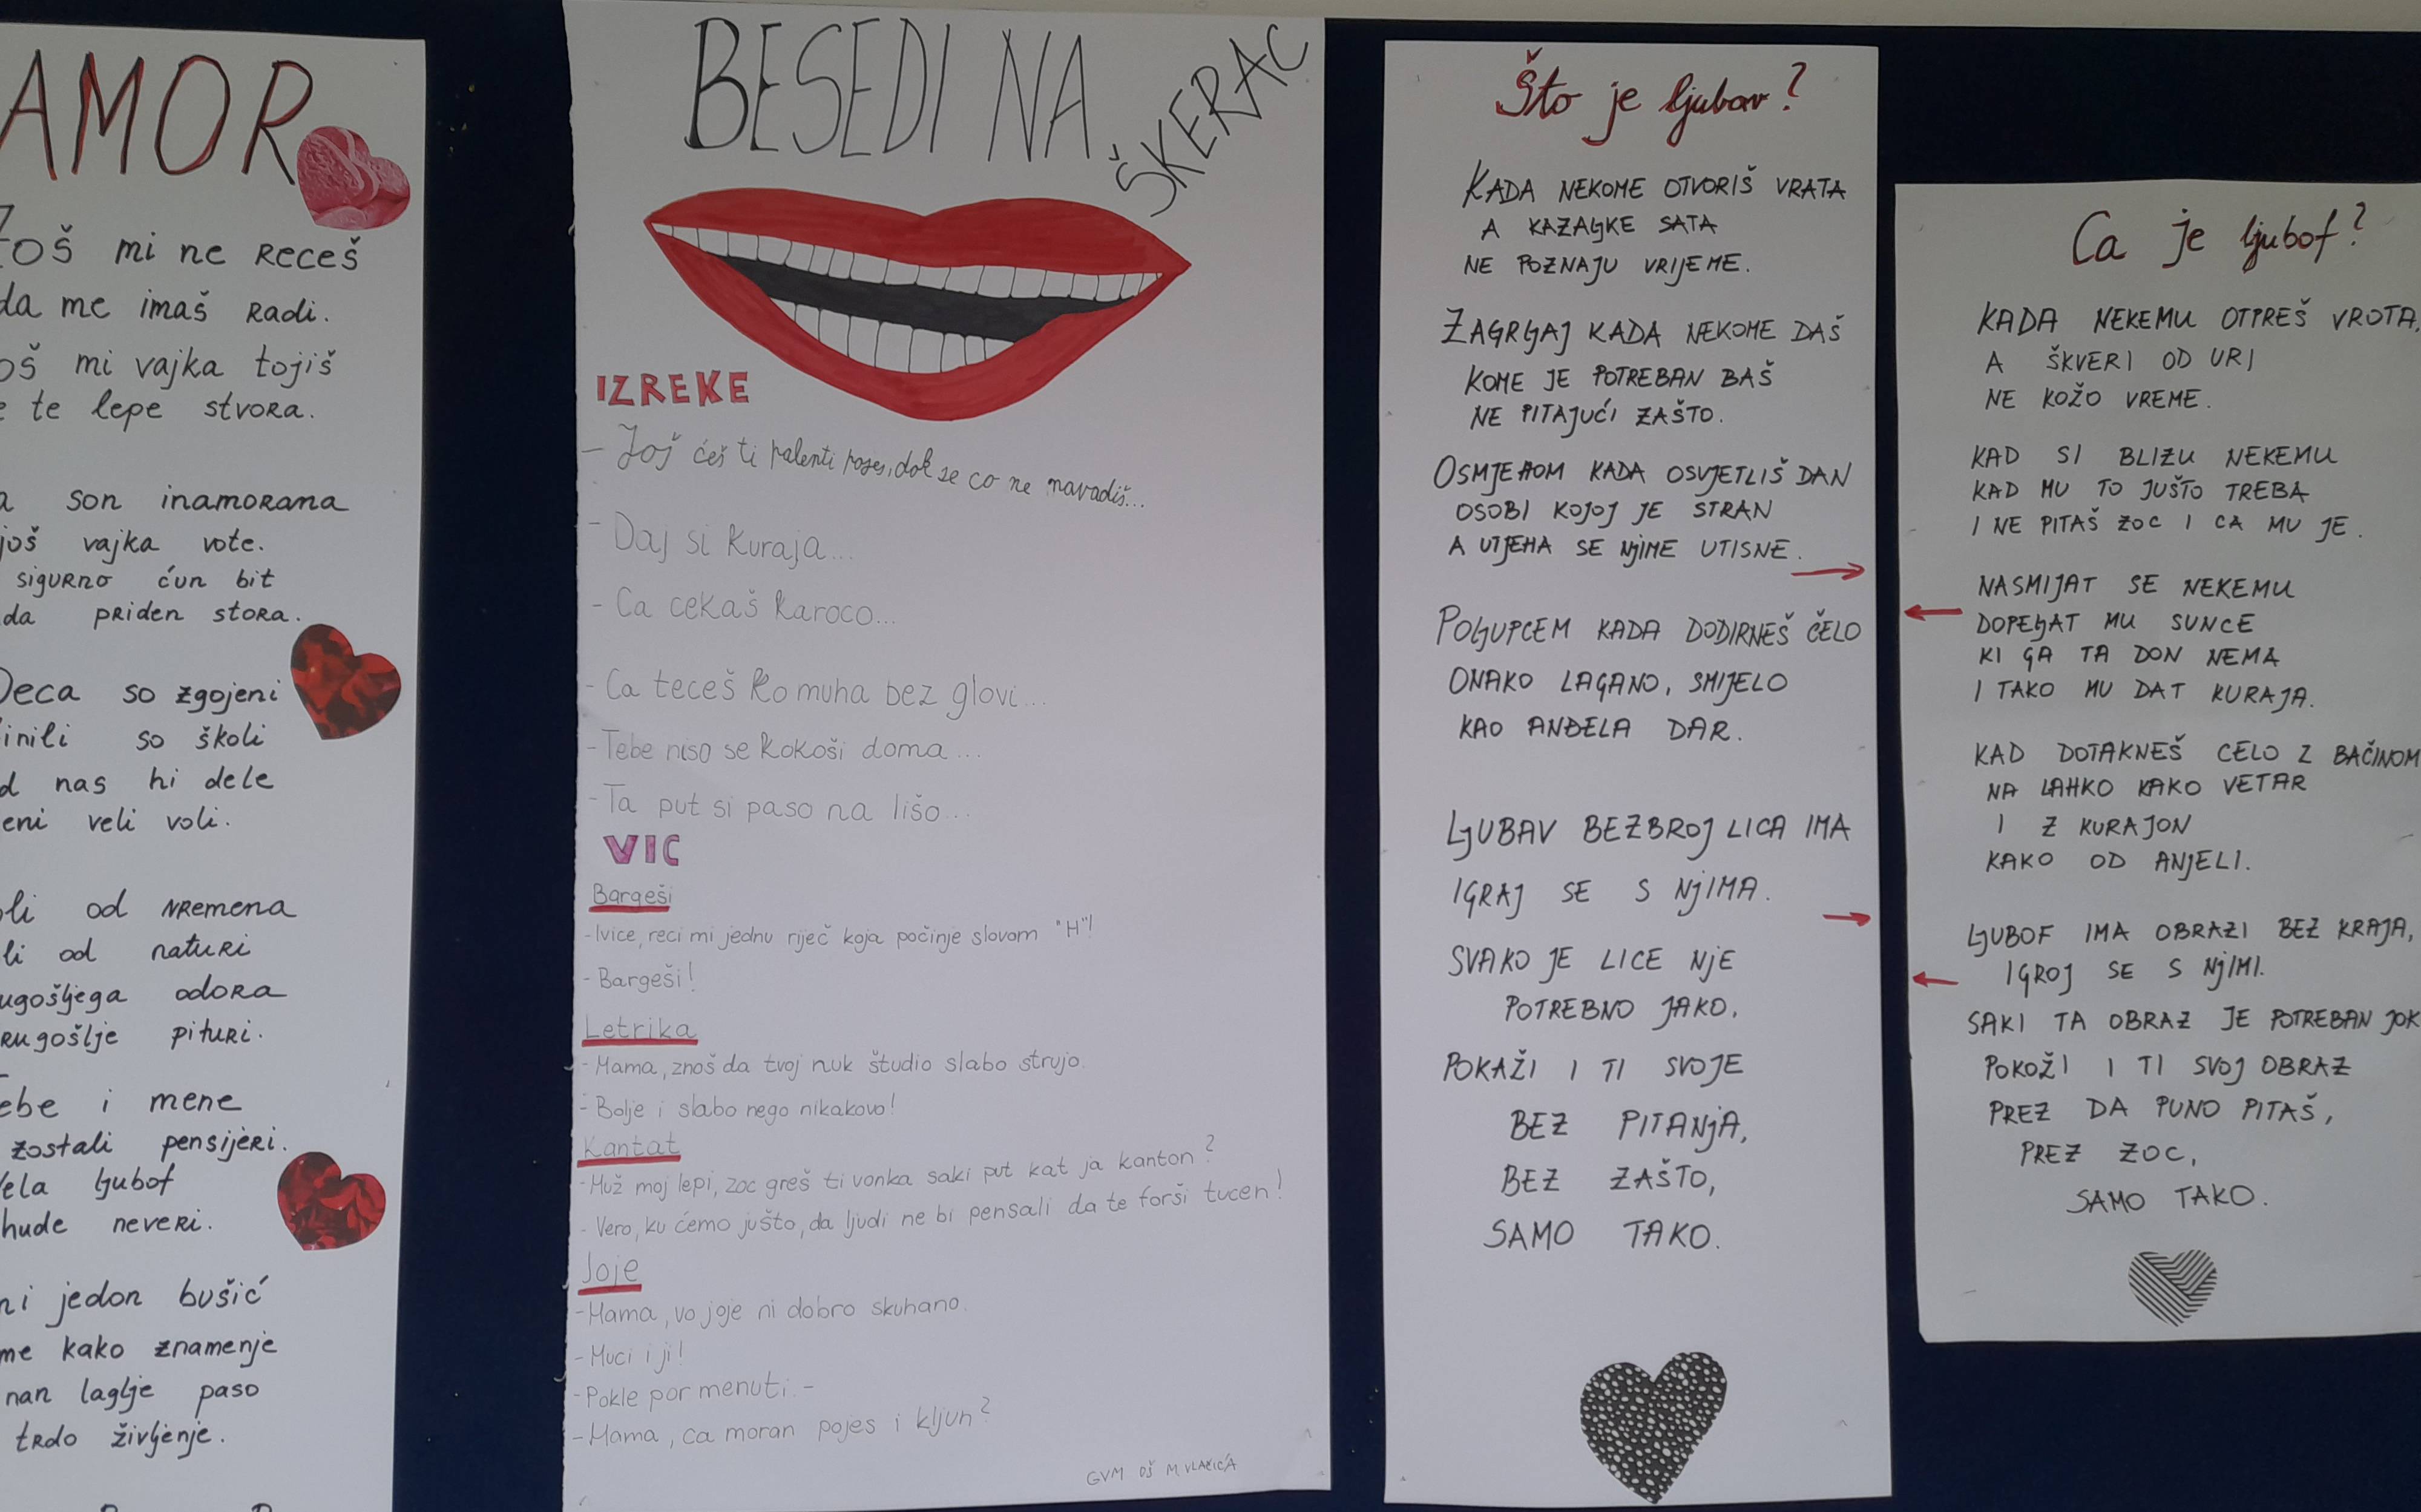 AMOR
mi ne Receš
da me imaš Radi.
mi vajka tojiš
te lepe stvoRa.
son inamoRana
još vajka vote.
siguRno ćun bit
da pRiden stoRa.
Deca so zgojeni
so školi
nas hi dele
veli voli.
od vRemena
od natuRi
odoRa
pituRi.
i mene
zostali pensijeRi.
ljubof
hude neveRi.
jedon bušić
me kako znamenje
nan laglje paso
tRdo življenje.
BESEDI NA ŠKERAC
IZREKE
- Još ćeš ti palenti pojes, dok se co ne navadiš...
- Daj si kuraja...
- Ca cekaš karoco...
- Ca teceš ko muha bez glovi...
- Tebe niso se kokoši doma...
- Ta put si paso na lišo...
VIC
Bargeši
- Ivice, reci mi jednu riječ koja počinje slovom "H"!
- Bargeši!
Letrika
- Mama, znoš da tvoj nuk študio slabo strujo.
- Bolje i slabo nego nikakovo!
Kantat
- Muž moj lepi, zoc greš ti vonka saki put kat ja kanton?
- Vero, ku ćemo jušto, da ljudi ne bi pensali da te forši tucen!
Joje
- Mama, vo joje ni dobro skuhano.
- Muci i ji!
- Pokle por menuti. -
- Mama, ca moran pojes i kljun?
GVM OŠ M. VLAČIĆA
Što je ljubav?
KADA NEKOME OTVORIŠ VRATA
A KAZALJKE SATA
NE POZNAJU VRIJEME.
ZAGRLJAJ KADA NEKOME DAŠ
KOME JE POTREBAN BAŠ
NE PITAJUĆI ZAŠTO.
OSMJEHOM KADA OSVJETLIŠ DAN
OSOBI KOJOJ JE STRAN
A UTJEHA SE NJIME UTISNE.
POLJUPCEM KADA DODIRNEŠ ČELO
ONAKO LAGANO, SMIJELO
KAO ANĐELA DAR.
LJUBAV BEZBROJ LICA IMA
IGRAJ SE S NJIMA.
SVAKO JE LICE NJE
POTREBNO JAKO,
POKAŽI I TI SVOJE
BEZ PITANJA,
BEZ ZAŠTO,
SAMO TAKO.
Ca je ljubof?
KADA NEKEMU OTPREŠ VROTA,
A ŠKVERI OD URI
NE KOŽO VREME.
KAD SI BLIZU NEKEMU
KAD MU TO JUŠTO TREBA
I NE PITAŠ ZOC I CA MU JE.
NASMIJAT SE NEKEMU
DOPELJAT MU SUNCE
KI GA TA DON NEMA
I TAKO MU DAT KURAJA.
KAD DOTAKNEŠ CELO Z BAČINOM
NA LAHKO KAKO VETAR
I Z KURAJON
KAKO OD ANJELI.
LJUBOF IMA OBRAZI BEZ KRAJA,
IGROJ SE S NJIMI.
SAKI TA OBRAZ JE POTREBAN JOK
POKOŽI I TI SVOJ OBRAZ
PREZ DA PUNO PITAŠ,
PREZ ZOC,
SAMO TAKO.